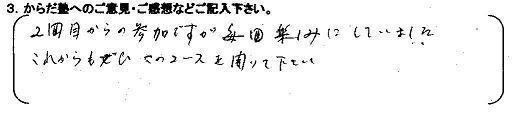 3. からだ塾へのご意見・ご感想などご記入下さい。
2回目からの参加ですが毎回楽しみにしていました
これからもぜひ このコースを開いて下さい